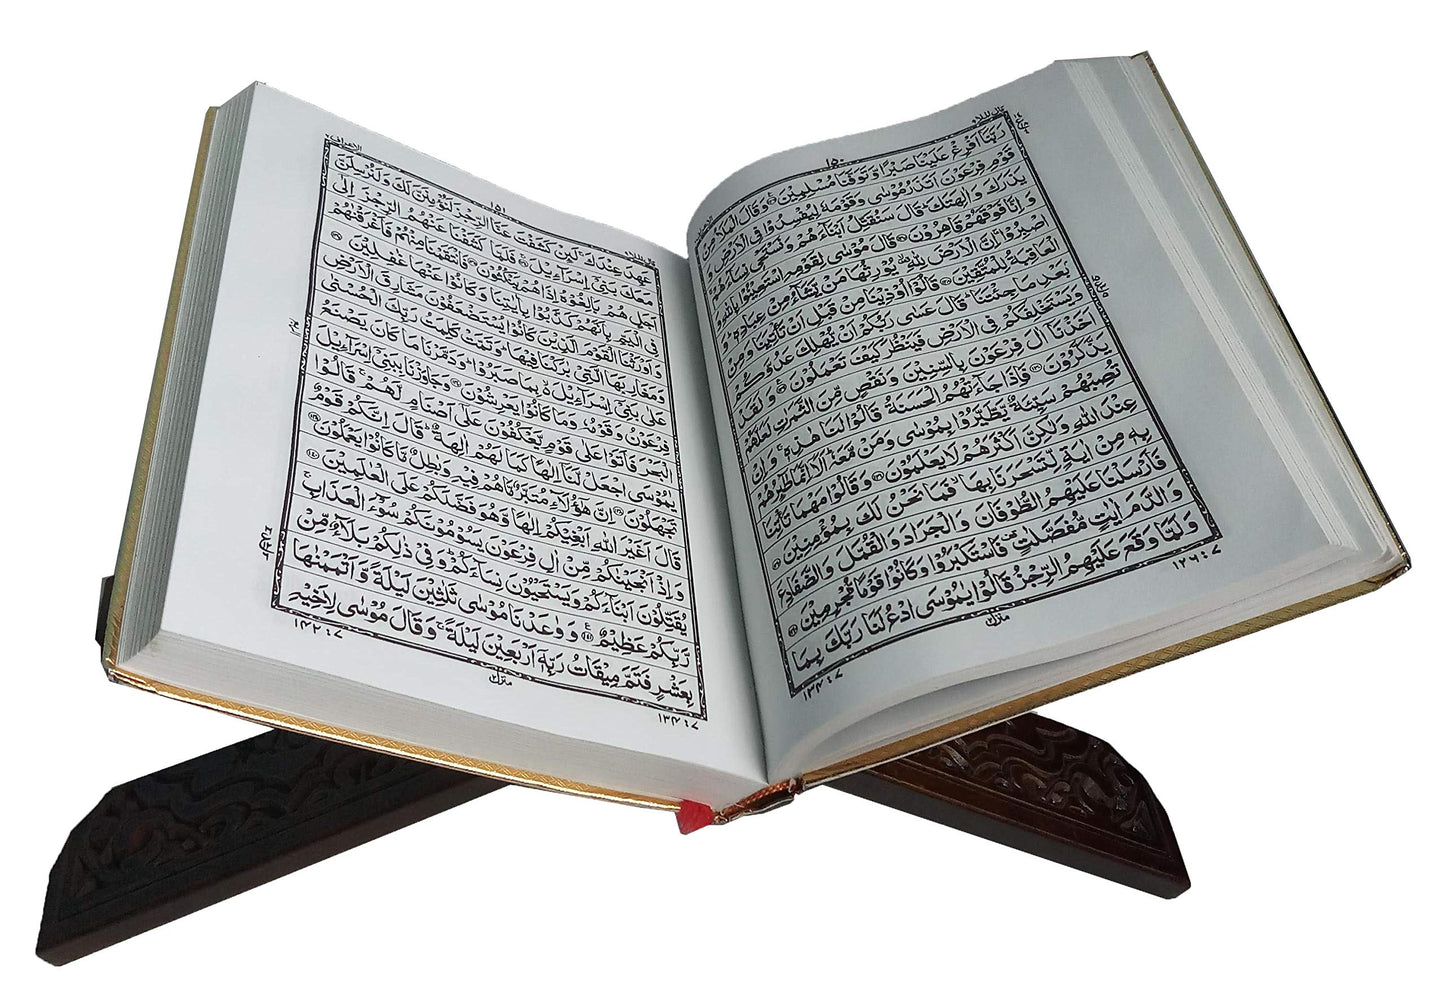 قال الملا ٩
١٥٠
رَبَّنَآ اَفْرِغْ عَلَيْنَا صَبْرًا وَّتَوَفَّنَا مُسْلِمِيْنَ ۝١٢٦ وَقَالَ الْمَلَاُ مِنْ
قَوْمِ فِرْعَوْنَ اَتَذَرُ مُوْسٰى وَقَوْمَهٗ لِيُفْسِدُوْا فِى الْاَرْضِ وَ
يَذَرَكَ وَاٰلِهَتَكَ ؕ قَالَ سَنُقَتِّلُ اَبْنَآءَهُمْ وَنَسْتَحْىٖ نِسَآءَهُمْ
وَاِنَّا فَوْقَهُمْ قَاهِرُوْنَ ۝١٢٧ قَالَ مُوْسٰى لِقَوْمِهِ اسْتَعِيْنُوْا بِاللّٰهِ وَ
اصْبِرُوْا ۚ اِنَّ الْاَرْضَ لِلّٰهِ ۙ يُوْرِثُهَا مَنْ يَّشَآءُ مِنْ عِبَادِهٖ ؕ وَ
الْعَاقِبَةُ لِلْمُتَّقِيْنَ ۝١٢٨ قَالُوْٓا اُوْذِيْنَا مِنْ قَبْلِ اَنْ تَاْتِيَنَا وَمِنْۢ
بَعْدِ مَا جِئْتَنَا ؕ قَالَ عَسٰى رَبُّكُمْ اَنْ يُّهْلِكَ عَدُوَّكُمْ
وَيَسْتَخْلِفَكُمْ فِى الْاَرْضِ فَيَنْظُرَ كَيْفَ تَعْمَلُوْنَ ۝١٢٩ وَلَقَدْ
اَخَذْنَآ اٰلَ فِرْعَوْنَ بِالسِّنِيْنَ وَنَقْصٍ مِّنَ الثَّمَرٰتِ لَعَلَّهُمْ
يَذَّكَّرُوْنَ ۝١٣٠ فَاِذَا جَآءَتْهُمُ الْحَسَنَةُ قَالُوْا لَنَا هٰذِهٖ ۚ وَاِنْ
تُصِبْهُمْ سَيِّئَةٌ يَّطَّيَّرُوْا بِمُوْسٰى وَمَنْ مَّعَهٗ ؕ اَلَآ اِنَّمَا طٰٓئِرُهُمْ
عِنْدَ اللّٰهِ وَلٰكِنَّ اَكْثَرَهُمْ لَا يَعْلَمُوْنَ ۝١٣١ وَقَالُوْا مَهْمَا تَاْتِنَا
بِهٖ مِنْ اٰيَةٍ لِّتَسْحَرَنَا بِهَا ۙ فَمَا نَحْنُ لَكَ بِمُؤْمِنِيْنَ ۝١٣٢
فَاَرْسَلْنَا عَلَيْهِمُ الطُّوْفَانَ وَالْجَرَادَ وَالْقُمَّلَ وَالضَّفَادِعَ
وَالدَّمَ اٰيٰتٍ مُّفَصَّلٰتٍ فَاسْتَكْبَرُوْا وَكَانُوْا قَوْمًا مُّجْرِمِيْنَ ۝١٣٣
وَلَمَّا وَقَعَ عَلَيْهِمُ الرِّجْزُ قَالُوْا يٰمُوْسَى ادْعُ لَنَا رَبَّكَ بِمَا
منزل ٢
الاعراف ٧
١٥١
قال الملا ٩
عَهِدَ عِنْدَكَ ۚ لَئِنْ كَشَفْتَ عَنَّا الرِّجْزَ لَنُؤْمِنَنَّ لَكَ وَلَنُرْسِلَنَّ
مَعَكَ بَنِىْٓ اِسْرَآءِيْلَ ۝١٣٤ فَلَمَّا كَشَفْنَا عَنْهُمُ الرِّجْزَ اِلٰٓى
اَجَلٍ هُمْ بٰلِغُوْهُ اِذَا هُمْ يَنْكُثُوْنَ ۝١٣٥ فَانْتَقَمْنَا مِنْهُمْ فَاَغْرَقْنٰهُمْ
فِى الْيَمِّ بِاَنَّهُمْ كَذَّبُوْا بِاٰيٰتِنَا وَكَانُوْا عَنْهَا غٰفِلِيْنَ ۝١٣٦
وَاَوْرَثْنَا الْقَوْمَ الَّذِيْنَ كَانُوْا يُسْتَضْعَفُوْنَ مَشَارِقَ الْاَرْضِ
وَمَغَارِبَهَا الَّتِىْ بٰرَكْنَا فِيْهَا ؕ وَتَمَّتْ كَلِمَتُ رَبِّكَ الْحُسْنٰى
عَلٰى بَنِىْٓ اِسْرَآءِيْلَ ۙ بِمَا صَبَرُوْا ؕ وَدَمَّرْنَا مَا كَانَ يَصْنَعُ
فِرْعَوْنُ وَقَوْمُهٗ وَمَا كَانُوْا يَعْرِشُوْنَ ۝١٣٧ وَجَاوَزْنَا بِبَنِىْٓ اِسْرَآءِيْلَ
الْبَحْرَ فَاَتَوْا عَلٰى قَوْمٍ يَّعْكُفُوْنَ عَلٰٓى اَصْنَامٍ لَّهُمْ ۚ قَالُوْا
يٰمُوْسَى اجْعَلْ لَّنَآ اِلٰهًا كَمَا لَهُمْ اٰلِهَةٌ ؕ قَالَ اِنَّكُمْ قَوْمٌ
تَجْهَلُوْنَ ۝١٣٨ اِنَّ هٰٓؤُلَآءِ مُتَبَّرٌ مَّا هُمْ فِيْهِ وَبٰطِلٌ مَّا كَانُوْا يَعْمَلُوْنَ ۝١٣٩
قَالَ اَغَيْرَ اللّٰهِ اَبْغِيْكُمْ اِلٰهًا وَّهُوَ فَضَّلَكُمْ عَلَى الْعٰلَمِيْنَ ۝١٤٠
وَاِذْ اَنْجَيْنٰكُمْ مِّنْ اٰلِ فِرْعَوْنَ يَسُوْمُوْنَكُمْ سُوْٓءَ الْعَذَابِ ۚ
يُقَتِّلُوْنَ اَبْنَآءَكُمْ وَيَسْتَحْيُوْنَ نِسَآءَكُمْ ؕ وَفِىْ ذٰلِكُمْ بَلَآءٌ مِّنْ
رَّبِّكُمْ عَظِيْمٌ ۝١٤١ وَوٰعَدْنَا مُوْسٰى ثَلٰثِيْنَ لَيْلَةً وَّاَتْمَمْنٰهَا
بِعَشْرٍ فَتَمَّ مِيْقَاتُ رَبِّهٖٓ اَرْبَعِيْنَ لَيْلَةً ۚ وَقَالَ مُوْسٰى لِاَخِيْهِ
منزل ٢